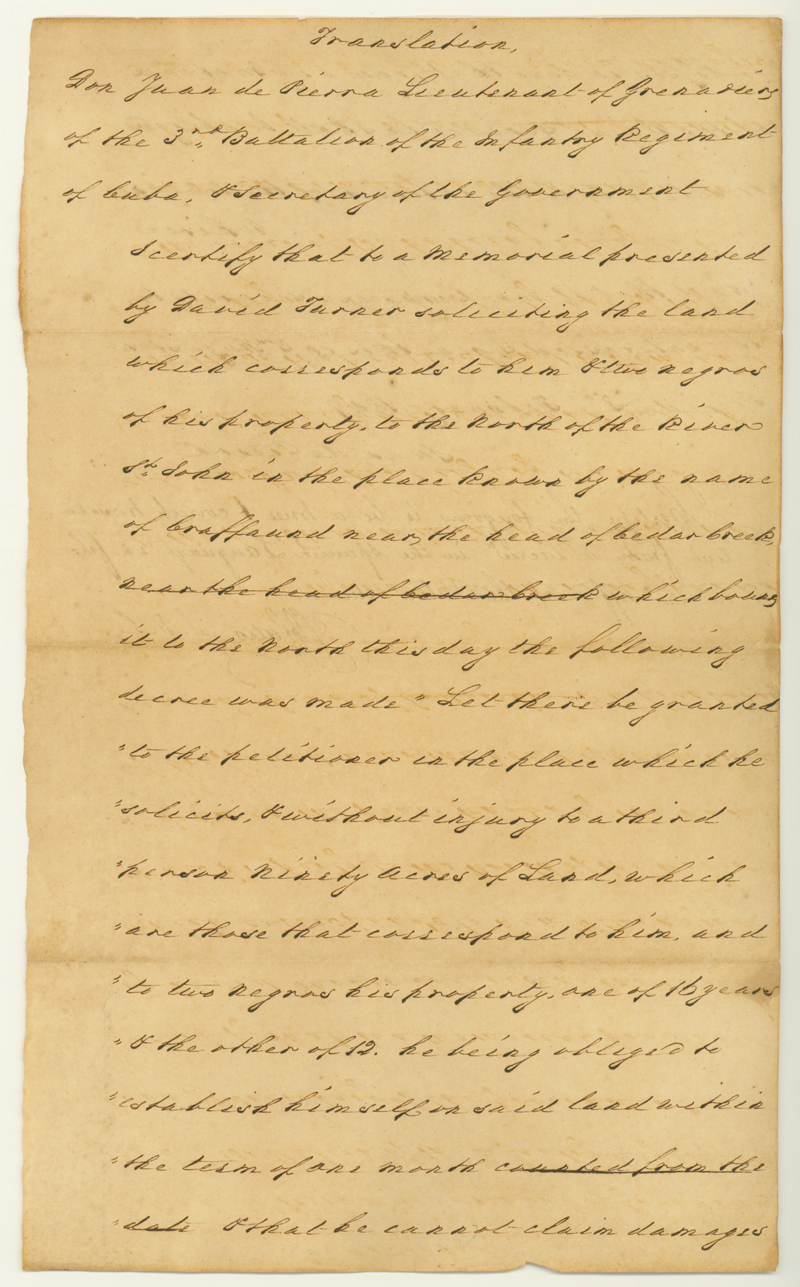 Translation,
Don Juan de Pierra Lieutenant of Grenadiers
of the 3rd. Battalion of the Infantry Regiment
of Cuba, & Secretary of the Government
I certify that to a Memorial presented
by David Turner soliciting the land
which corresponds to him & two negros
of his property, to the North of the River
St. John in the place known by the name
of Graffaund near, the head of Cedar Creek,
near the head of Cedar Creek which bounds
it to the North this day the following
decree was made "Let there be granted
"to the petitioner in the place which he
"solicits, & without injury to a third
"person Ninety Acres of Land, which
"are those that correspond to him, and
"to two negros his property, one of 16 years
"& the other of 12. he being obliged to
"establish himself on said land within
"the term of one month counted from the
"date & that he cannot claim damages